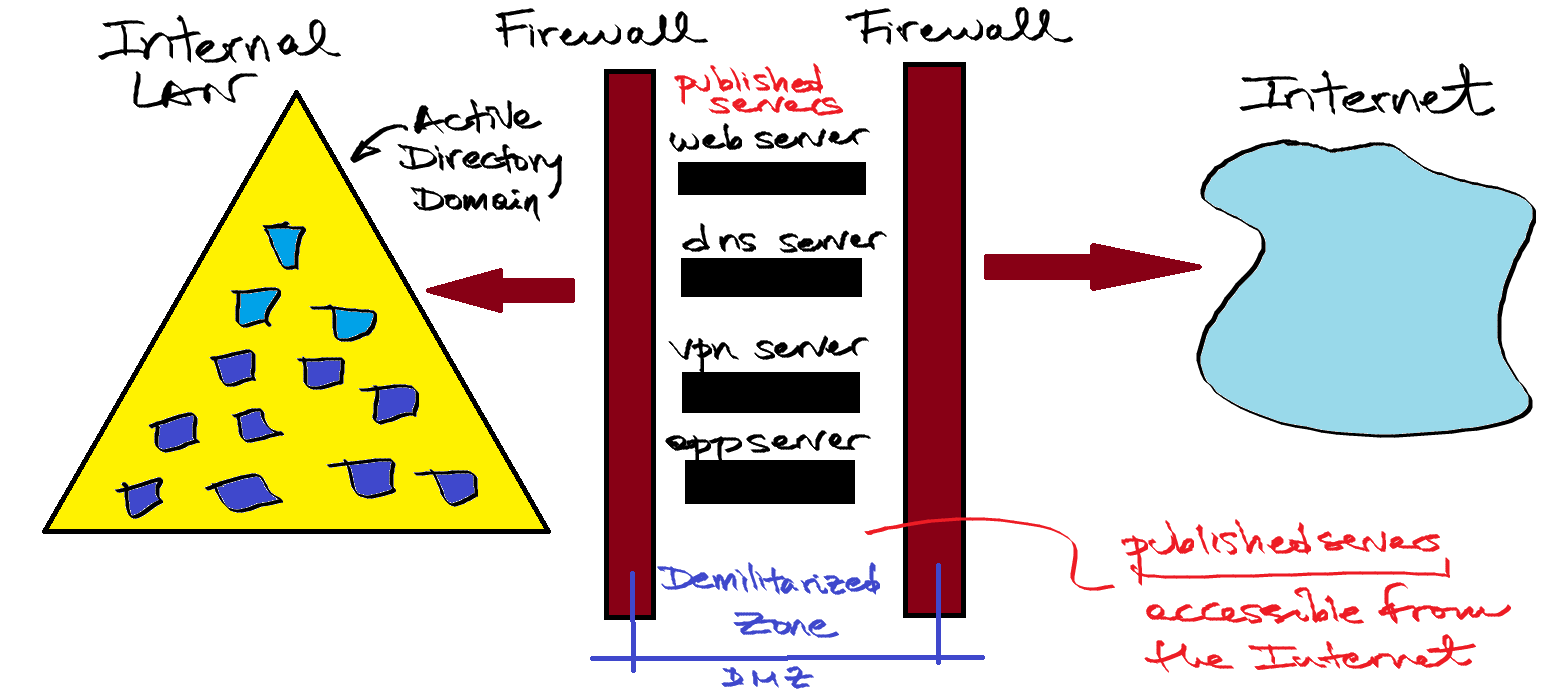 Internal
LAN
Active
Directory
Domain
Firewall
Firewall
published
servers
web server
dns server
vpn server
app server
Demilitarized
Zone
DMZ
Internet
published servers
accessible from
the Internet